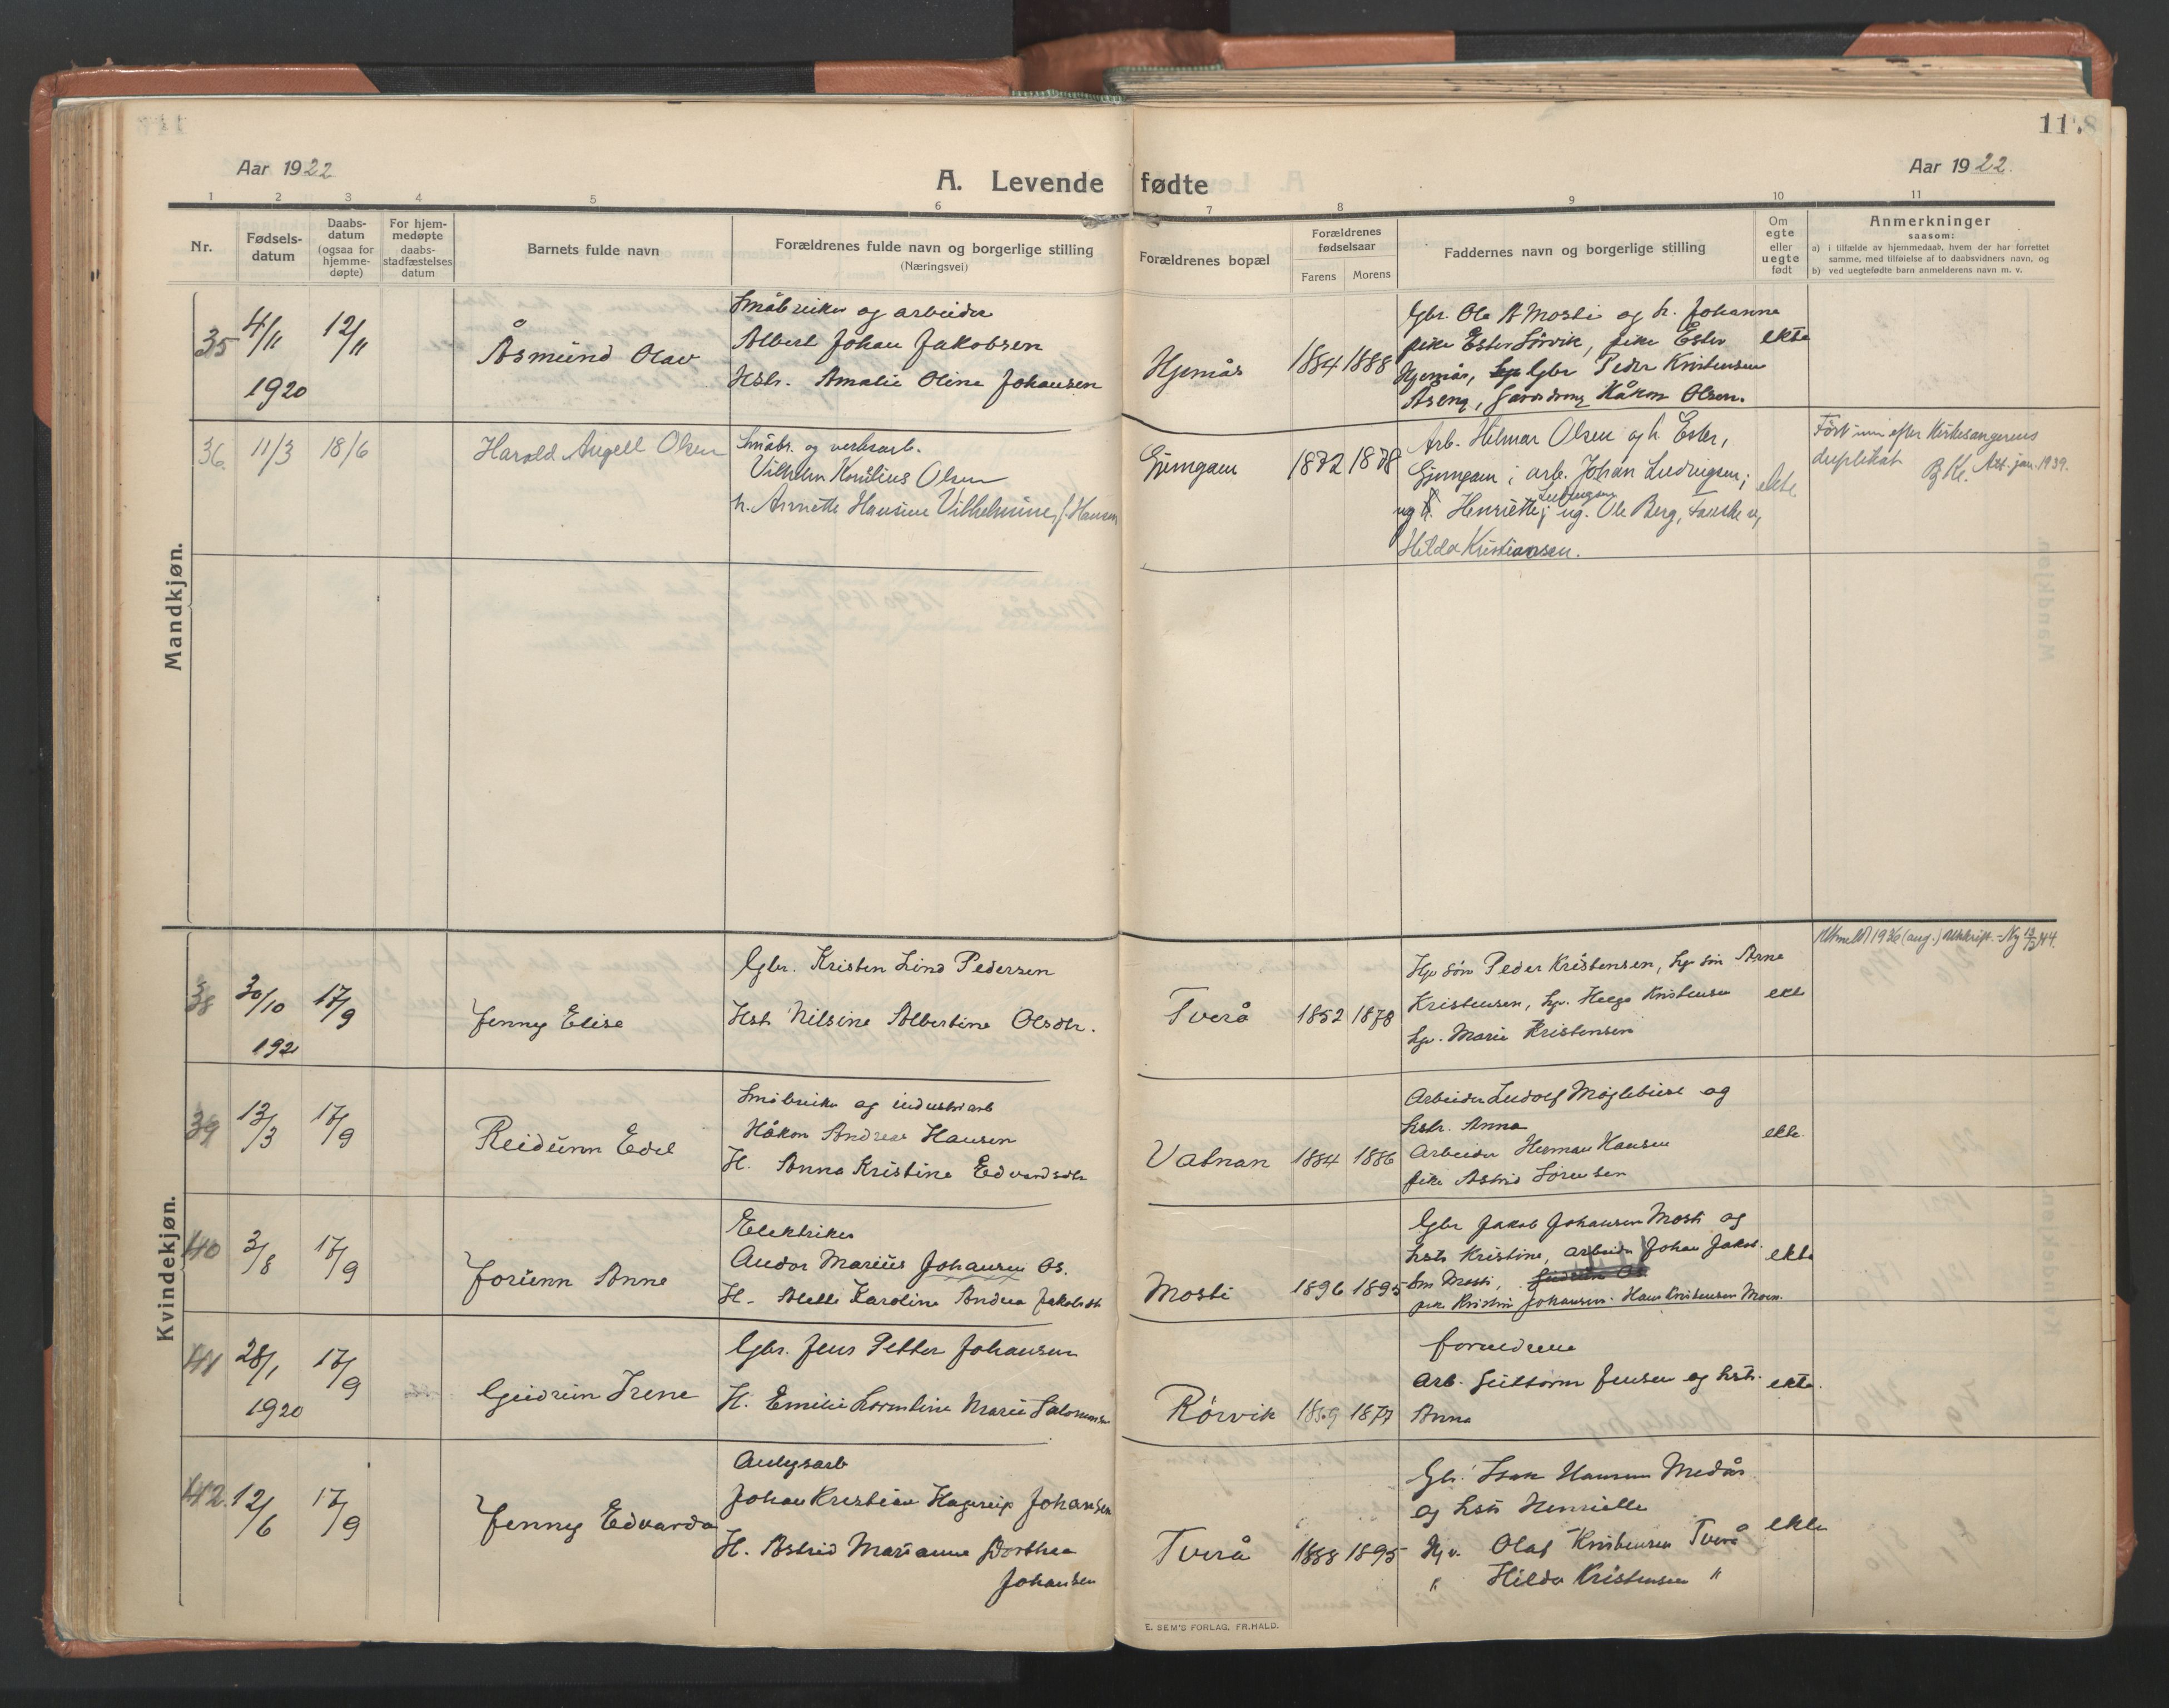 118
Aar 1922
Aar 1922.
A. Levende fødte
1 2 3 4 5 6 7 8 9 10 11
Nr.
Fødsels-
datum
Daabs-
datum
(ogsaa for
hjemme-
døpte)
For hjem-
medøpte
daabs-
stadfæstelses
datum
Barnets fulde navn
Forældrenes fulde navn og borgerlige stilling
(Næringsvei)
Forældrenes bopæl
Forældrenes
fødselsaar
Farens Morens
Faddernes navn og borgerlige stilling
Om
egte
eller
uegte
født
Anmerkninger
saasom:
a) i tilfælde av hjemmedaab, hvem der har forrettet
samme, med tilføielse af to daabsvidners navn, og
b) ved uegtefødte barn anmelderens navn m. v.
Mandkjøn.
35 4/11 1920 12/11
Åsmund Olav
Småbruker og arbeider
Albert Johan Jakobsen
Hstr. Amalie Oline Johansen
Hjemås
1884 1888
Gbr. Ole A Mosti og h. Johanna
pike Ester Sörvik, pike Ester
Hjemås, Gbr Peder Kristensen
Åseng, Gårdsdreng Håkon Olsen.
ekte
36. 11/3 18/6
Harald Angell Olsen
Småbr. og verksarb.
Vilhelm Kornelius Olsen
h. Annette Hansine Vilhelmine, f. Hansen
Gjemgam
1872 1878
Arb. Hilmar Olsen og h. Ester,
Gjemgam; arb. Johan Ludvigsen;
ug h. Henriette Ludvigsen; ug. Ole Berg, Fauske v,
Hilda Kristiansen.
ekte
Fört inn efter Kirkesangerens
duplikat B Kl. Att. jan. 1939.
Kvindekjøn.
38 30/10 1921 17/9
Jenny Elise
Gbr. Kristen Lind Pedersen
Hstr Nilsine Albertine Olsdtr.
Tverå
1852 1878
Hjv sön Peder Kristensen, hjv sön Arne
Kristensen, hjv. Helga Kristensen
hjv. Marie Kristensen
ekte
Utmeldt 1936 (aug.) Utskrift. - Ny 12/2 44.
39 13/3 17/9
Reidunn Edel
Småbruker og industriarb
Håkon Andreas Hansen
H. Anna Kristine Edvardsdtr
Vatnan
1884 1886
Arbeider Ludolf Möglebust og
hstr. Anna
Arbeider Herman Hansen
pike Astrid Sörensen
ekte.
40 3/8 17/9
Jorunn Anne
Elektriker
Andor Marius Johansen Os.
H. Alette Karoline Andrea Jakobsdtr
Mosti
1896 1895
Gbr Jakob Johansen Mosti og
hstr Kristine, arbeider Johan Jakob-
sen Mosti,
pike Kristine Johansen. Hans Kristensen Moen.
ekte
41 28/1 1920 17/9
Gudrun Irene
Gbr. Jens Petter Johansen
H. Emilie Lorentine Marie Salomonsen
Rörvik
1869 1877
foreldrene
Arb. Guttorm Jensen og hstr.
Anna
ekte.
42. 12/6 17/9
Jenny Edvarda
Anlegsarb
Johan Kristian Hagerup Johansen
H. Astrid Marianne Dorthea
Johansen
Tverå
1888 1895
Gbr. Isak Hansen Medås
og hstr Henriette
Hjv. Olaf Kristensen Tverå
" Hilda Kristensen "
ekte
E. SEM'S FORLAG, FR.HALD.